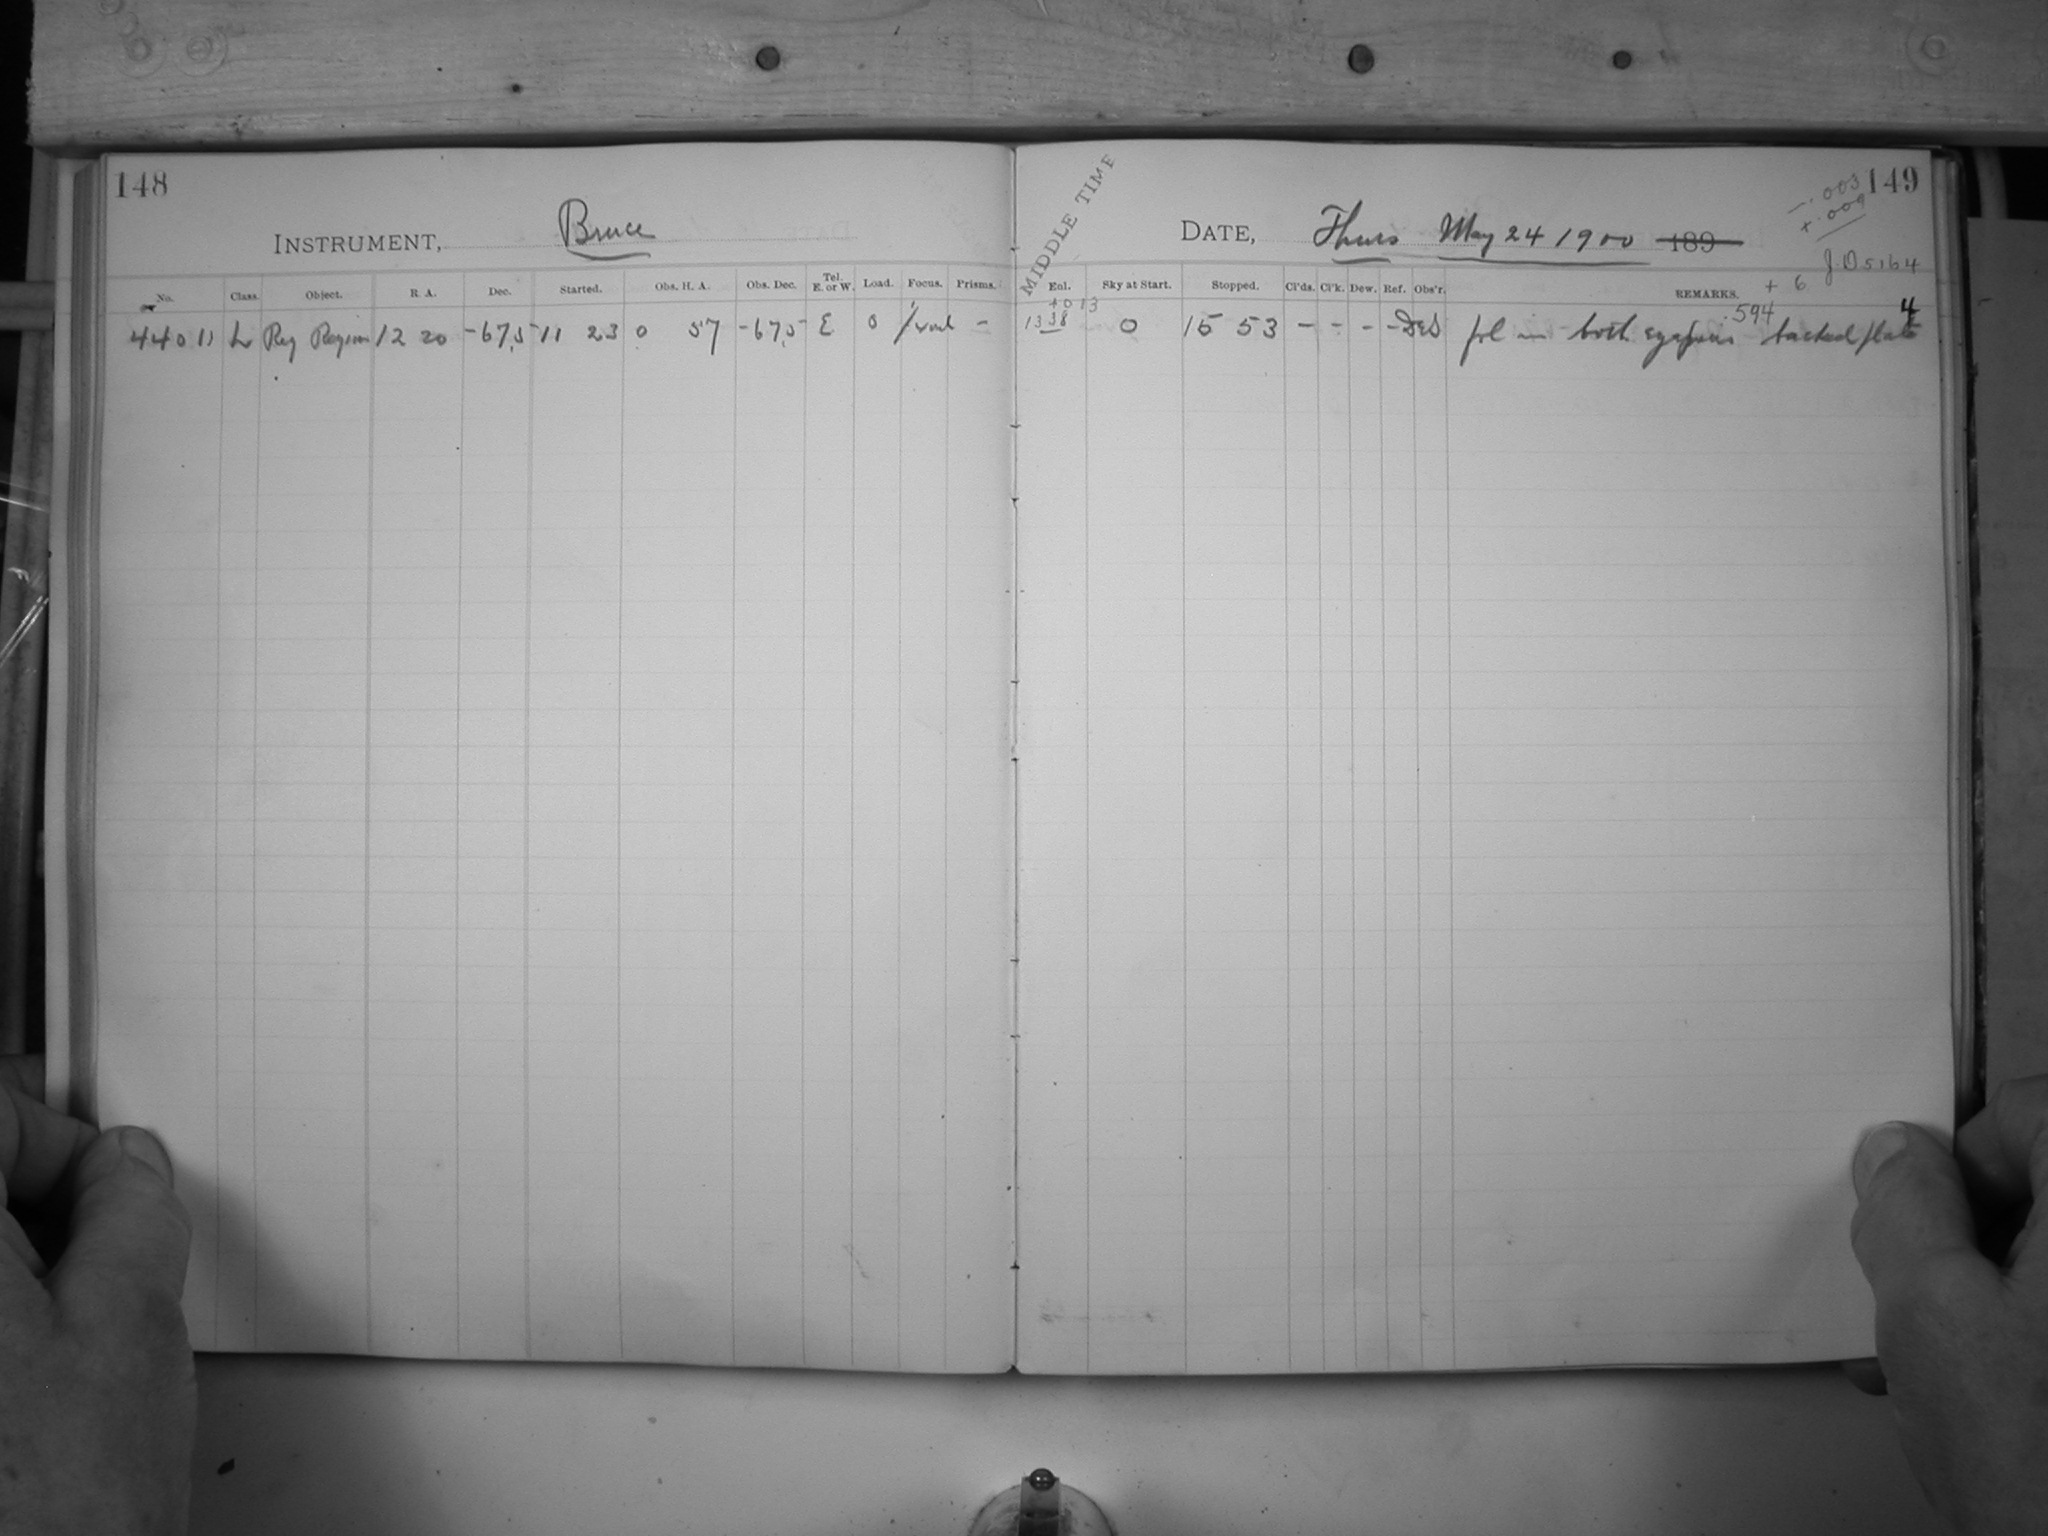 148
INSTRUMENT, Bruce
No. Class. Object. R. A. Dec. Started. Obs. H. A. Obs. Dec. Tel. E. or W. Load. Focus. Prisms.
44011 L Reg Region 12 20 -67,5 11 23 0 57 -67,5 E 0 –
149
-.003
+.009
MIDDLE TIME
DATE, Thurs May 24 1900 189
J.D 5164
+ 6
Eol. Sky at Start. Stopped. Cl'ds. Cl'k. Dew. Ref. Obs'r. REMARKS.
+013
.594
4
1338 0 15 53 – – – – in both backed plate